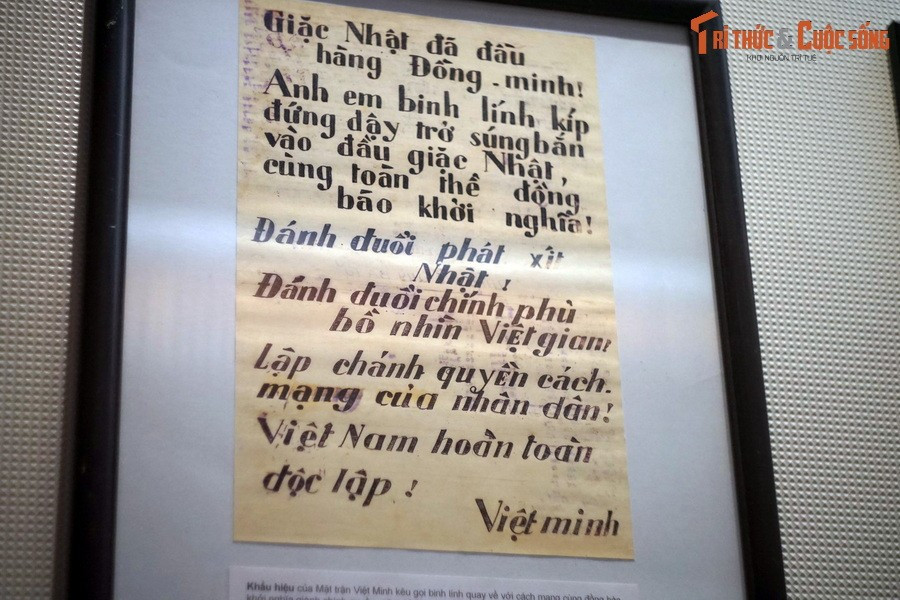 TRI THỨC & CUỘC SỐNG
KHƠI NGUỒN TRI TUỆ
Giặc Nhật đã đầu
hàng Đồng-minh!
Anh em binh lính kíp
đứng dậy trở súng bắn
vào đầu giặc Nhật,
cùng toàn thể đồng
bào khởi nghĩa!
Đánh đuổi phát xít
Nhật!
Đánh đuổi chính phủ
bồ nhìn Việt gian!
Lập chánh quyền cách-
mạng của nhân dân!
Việt Nam hoàn toàn
độc lập!
Việt minh
Khẩu hiệu của Mặt trận Việt Minh kêu gọi binh lính quay về với cách mạng cùng đồng bào